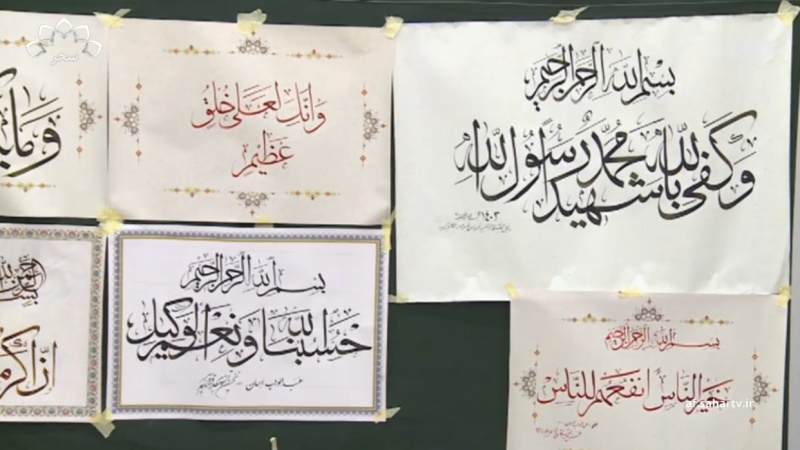 سحر
وما
وَإِنَّكَ لَعَلَىٰ خُلُقٍ
عَظِيمٍ
بسم الله الرحمن الرحیم
وَكَفىٰ بِاللّٰهِ شَهِيدًا مُحَمَّدٌ رَسُولُ اللّٰه
۱۴۰۳
بسم الله الرحمن الرحیم
حَسبُنَا اللّٰه وَنِعمَ الوَكيل
عبدالوهاب
ان اکرم
بسم الله الرحمن الرحیم
خَيرُ النّاسِ أَنفَعُهُم لِلنّاسِ
af.sahartv.ir